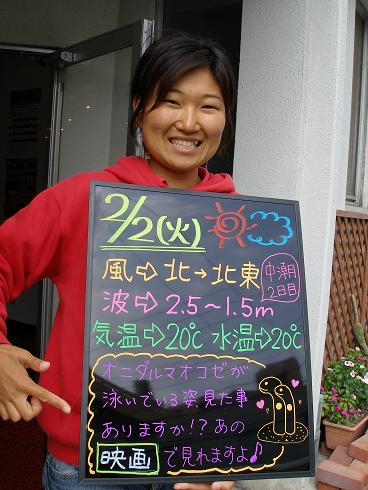 2/2(火)
風⇨北→北東
中潮
2日目
波⇨2.5～1.5m
気温⇨20℃ 水温⇨20℃
オニダルマオコゼが
泳いでいる姿見た事
ありますか!?あの
映画で見れますよ♪